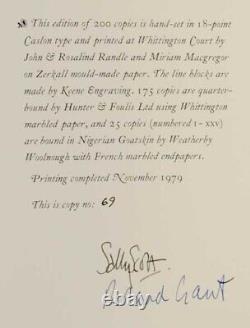 This edition of 200 copies is hand-set in 18-point
Caslon type and printed at Whittington Court by
John & Rosalind Randle and Miriam Macgregor
on Zerkall mould-made paper. The line blocks are
made by Keene Engraving. 175 copies are quarter-
bound by Hunter & Foulis Ltd using Whittington
marbled paper, and 25 copies (numbered I - XXV)
are bound in Nigerian Goatskin by Weatherby
Woolnough with French marbled endpapers.
Printing completed November 1979
This is copy no: 69
Sally Scott.
Richard Grant